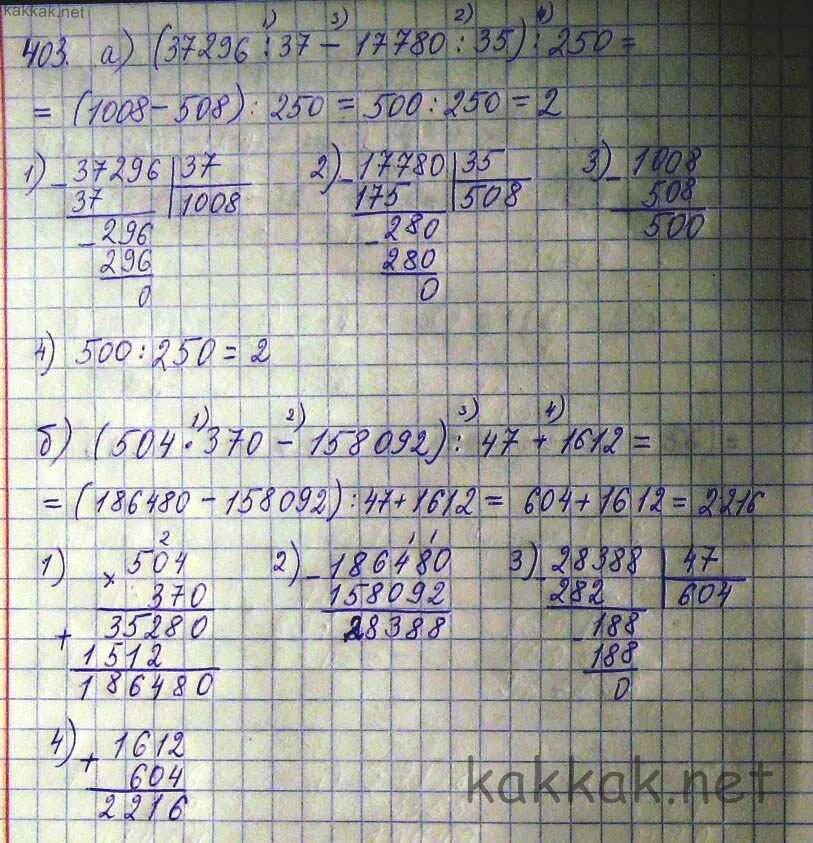 kakkak.net
403. а) (37296 : 37 - 17780 : 35) : 250 =
1) 3) 2) 4)
= (1008 - 508) : 250 = 500 : 250 = 2
1) - 37296 | 37
37 | 1008
- 296
296
0
2) - 17780 | 35
175 | 508
- 280
280
0
3) - 1008
508
500
4) 500 : 250 = 2
1) 2) 3) 4)
б) (504 · 370 - 158092) : 47 + 1612 =
= (186480 - 158092) : 47 + 1612 = 604 + 1612 = 2216
2
1) × 504
370
+ 35280
1512
186480
2) - 186480
158092
28388
3) - 28388 | 47
282 | 604
- 188
188
0
4) + 1612
604
2216
kakkak.net